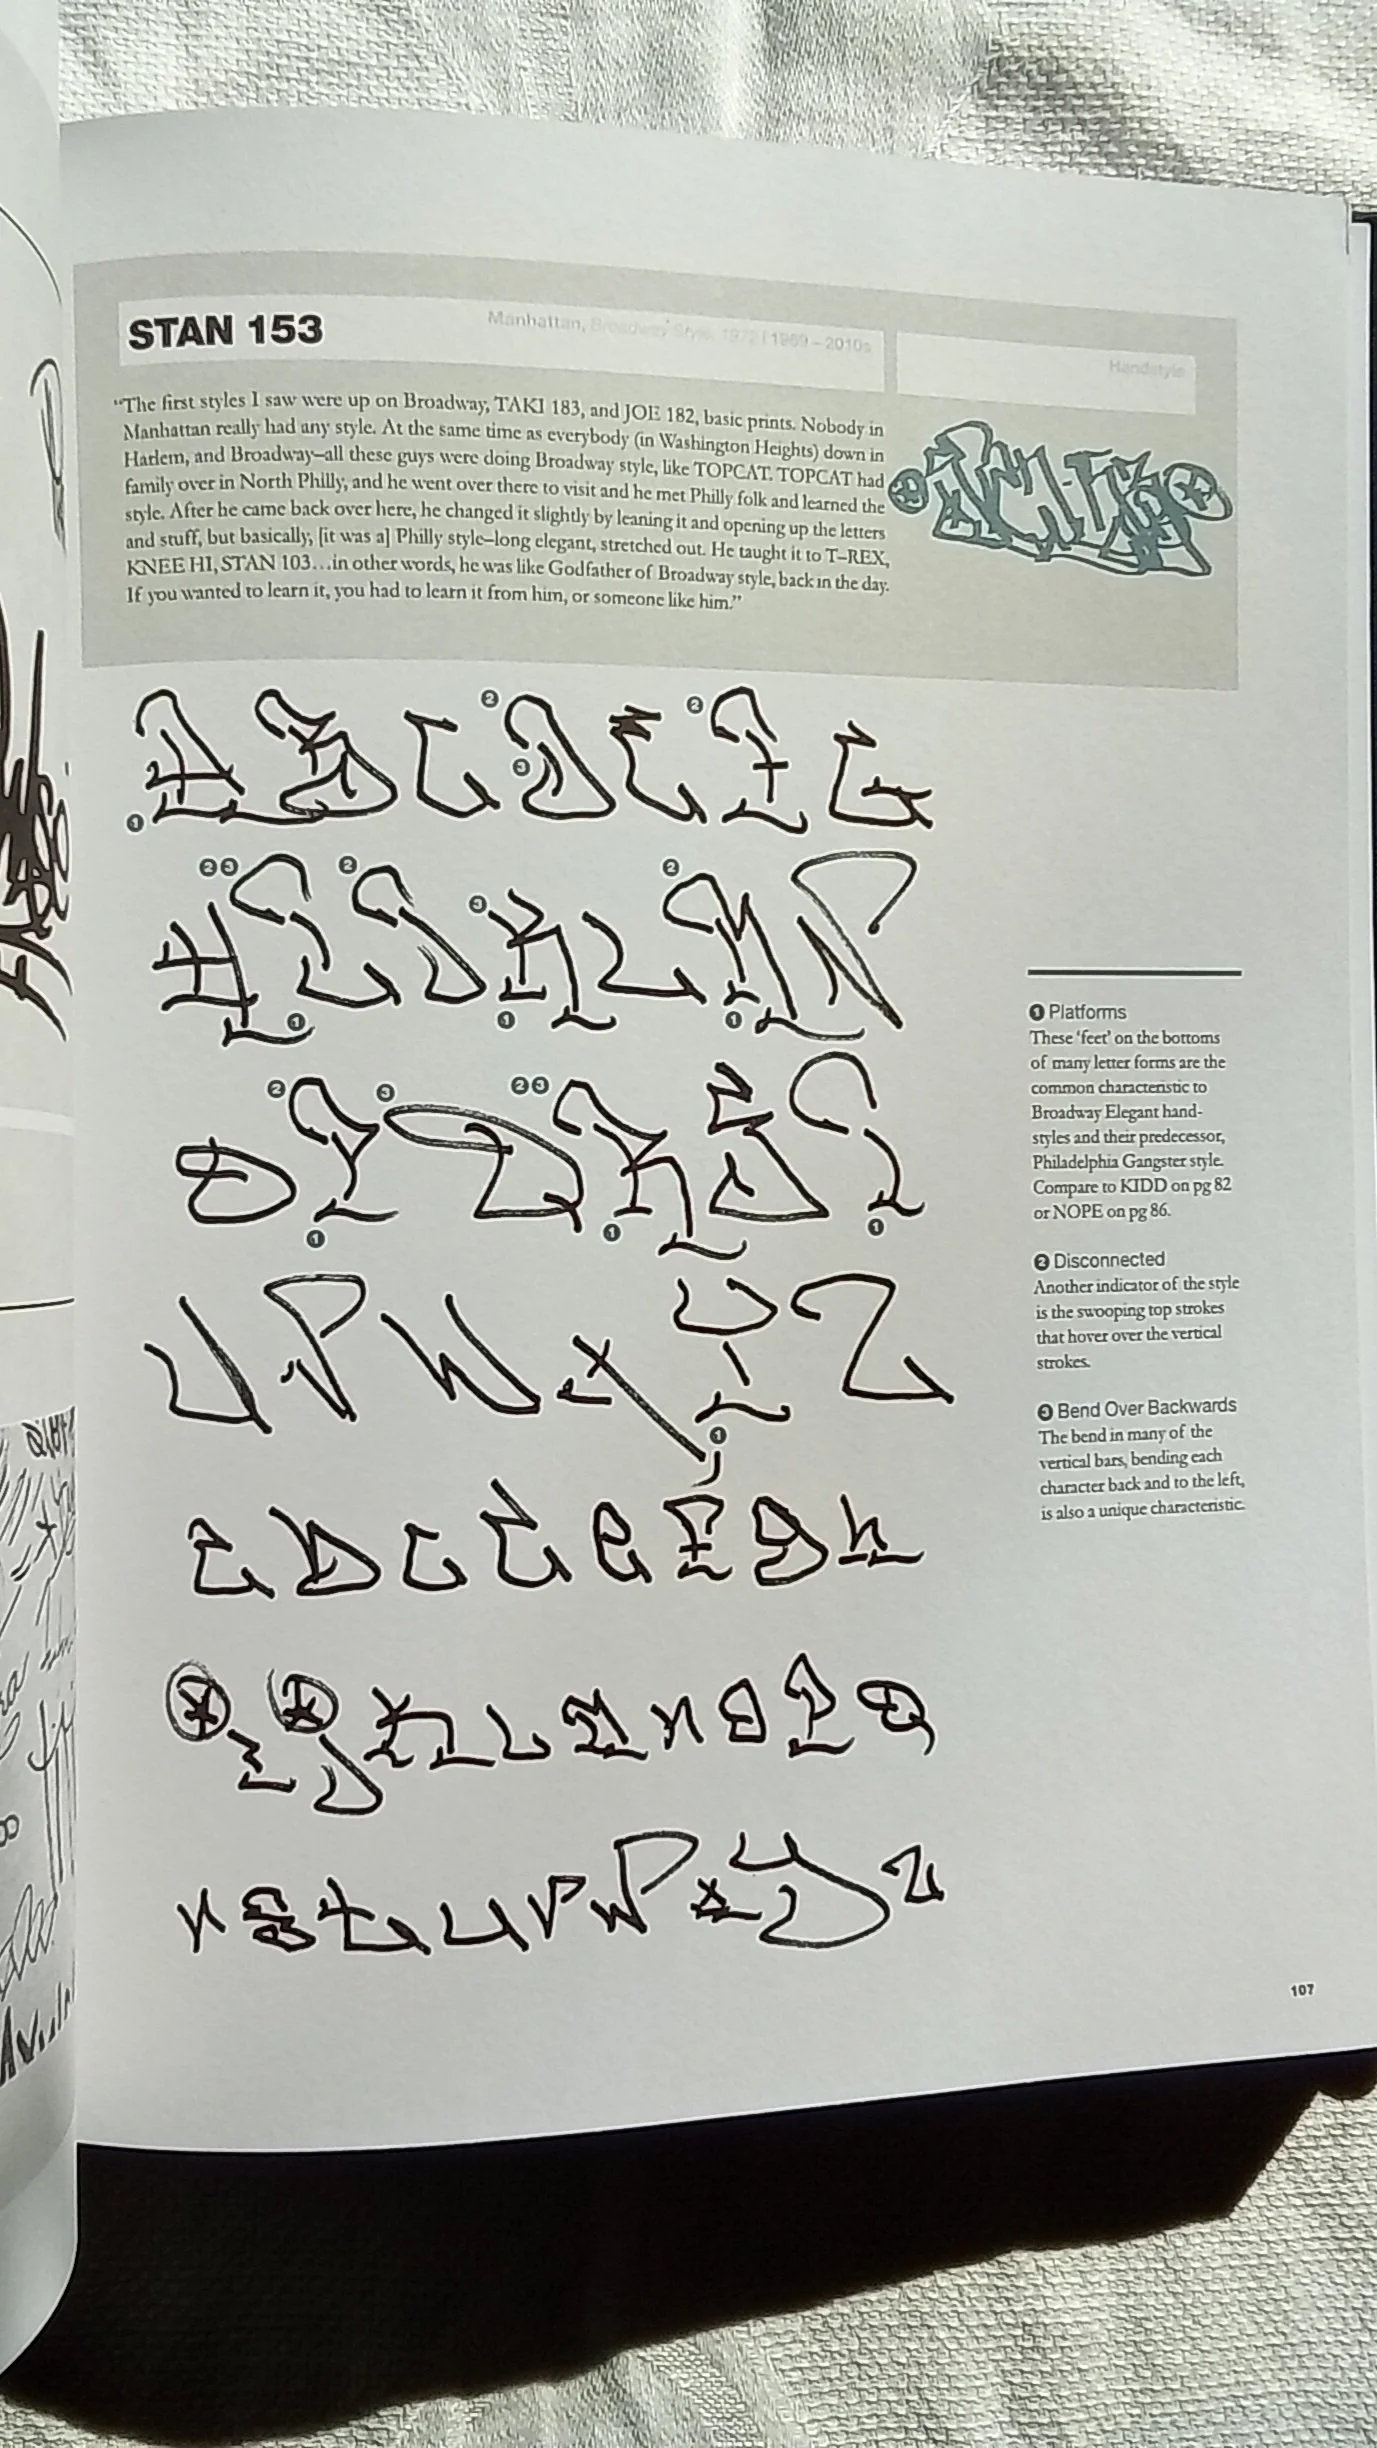 STAN 153
Manhattan, Broadway Style, 1972 | 1969 – 2010s
Handstyle
“The first styles I saw were up on Broadway, TAKI 183, and JOE 182, basic prints. Nobody in
Manhattan really had any style. At the same time as everybody (in Washington Heights) down in
Harlem, and Broadway–all these guys were doing Broadway style, like TOPCAT. TOPCAT had
family over in North Philly, and he went over there to visit and he met Philly folk and learned the
style. After he came back over here, he changed it slightly by leaning it and opening up the letters
and stuff, but basically, [it was a] Philly style–long elegant, stretched out. He taught it to T–REX,
KNEE HI, STAN 103…in other words, he was like Godfather of Broadway style, back in the day.
If you wanted to learn it, you had to learn it from him, or someone like him.”
A B C D E F G
H I J K L M N
O P Q R S T
U V W X Y Z
a b c d e f g h
i j k l m n o p q
r s t u v w x y z
1 Platforms
These ‘feet’ on the bottoms
of many letter forms are the
common characteristic to
Broadway Elegant hand-
styles and their predecessor,
Philadelphia Gangster style.
Compare to KIDD on pg 82
or NOPE on pg 86.
2 Disconnected
Another indicator of the style
is the swooping top strokes
that hover over the vertical
strokes.
3 Bend Over Backwards
The bend in many of the
vertical bars, bending each
character back and to the left,
is also a unique characteristic.
107